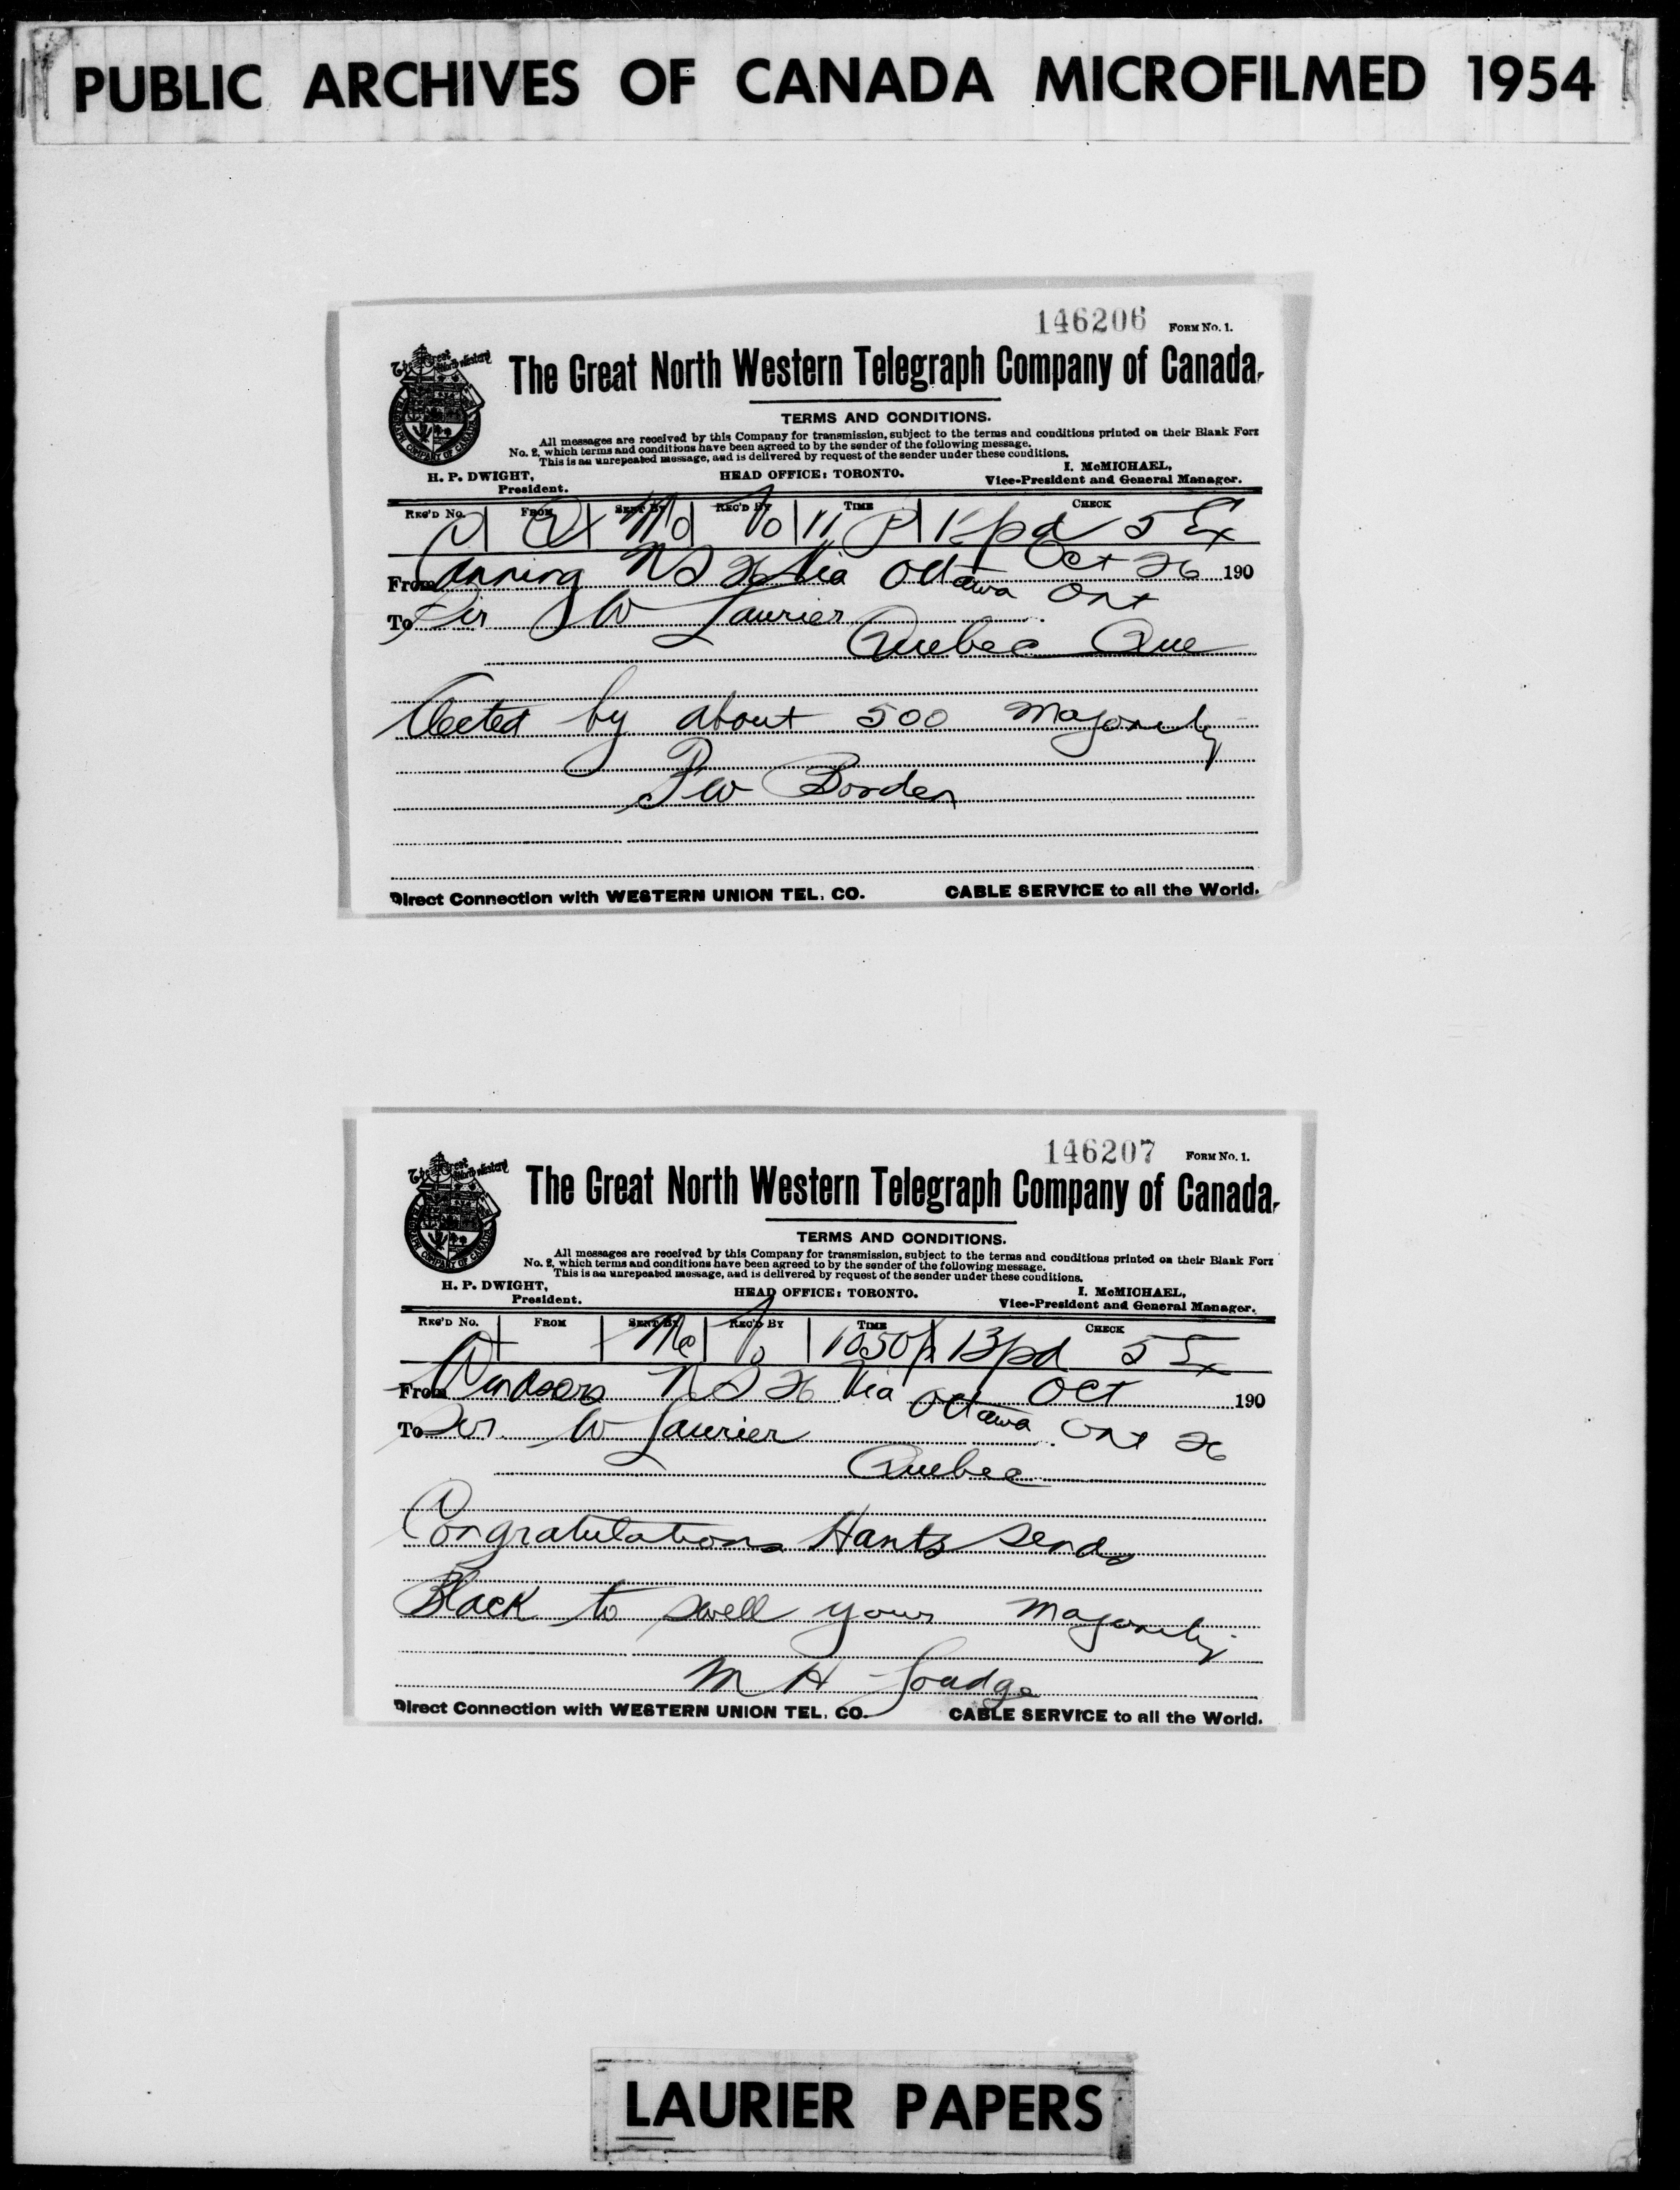 PUBLIC ARCHIVES OF CANADA MICROFILMED 1954
146206 FORM No. 1.
The Great North Western Telegraph Company of Canada.
TERMS AND CONDITIONS.
All messages are received by this Company for transmission, subject to the terms and conditions printed on their Blank Form
No. 2, which terms and conditions have been agreed to by the sender of the following message.
This is an unrepeated message, and is delivered by request of the sender under these conditions.
H. P. DWIGHT, President.
HEAD OFFICE: TORONTO.
I. McMICHAEL, Vice-President and General Manager.
REC'D No. FROM SENT BY REC'D BY TIME CHECK
11 P pd 5 Ex
From Canning NS 26 Via Ottawa Ont Oct 26 190
To Sir W Laurier
Quebec Que
Elected by about 500 majority
F W Borden
Direct Connection with WESTERN UNION TEL. CO. CABLE SERVICE to all the World.
146207 FORM No. 1.
The Great North Western Telegraph Company of Canada.
TERMS AND CONDITIONS.
All messages are received by this Company for transmission, subject to the terms and conditions printed on their Blank Form
No. 2, which terms and conditions have been agreed to by the sender of the following message.
This is an unrepeated message, and is delivered by request of the sender under these conditions.
H. P. DWIGHT, President.
HEAD OFFICE: TORONTO.
I. McMICHAEL, Vice-President and General Manager.
REC'D No. FROM SENT BY REC'D BY TIME CHECK
1050p 13pd 5 Ex
From Windsor NS 26 Via Ottawa Ont Oct 26 190
To Sir W Laurier
Quebec
Congratulations Hants sends
Black to swell your majority
M H Goudge
Direct Connection with WESTERN UNION TEL. CO. CABLE SERVICE to all the World.
LAURIER PAPERS